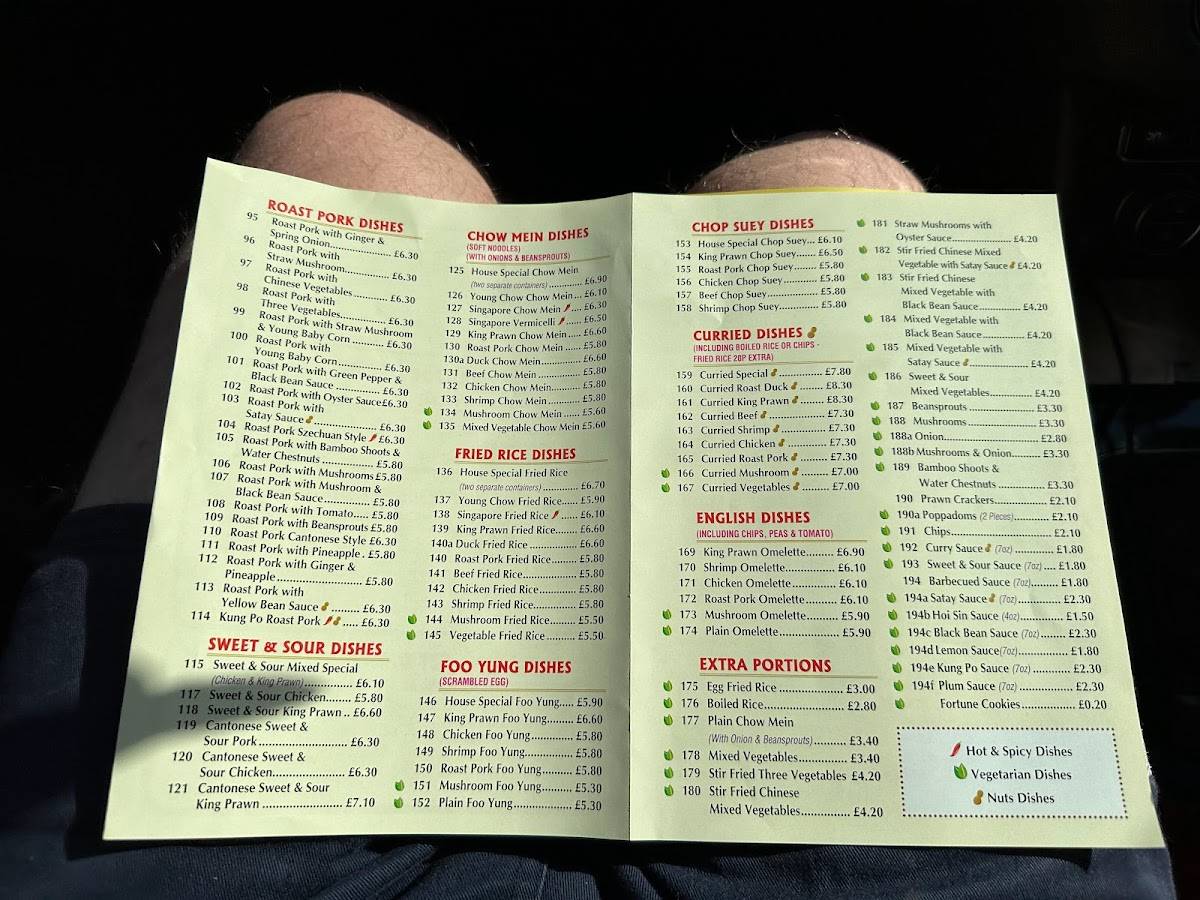 ROAST PORK DISHES
95 Roast Pork with Ginger &
Spring Onion............ £6.30
96 Roast Pork with
Straw Mushroom............ £6.30
97 Roast Pork with
Chinese Vegetables............ £6.30
98 Roast Pork with
Three Vegetables............ £6.30
99 Roast Pork with Straw Mushroom
& Young Baby Corn............ £6.30
100 Roast Pork with
Young Baby Corn............ £6.30
101 Roast Pork with Green Pepper &
Black Bean Sauce............ £6.30
102 Roast Pork with Oyster Sauce£6.30
103 Roast Pork with
Satay Sauce............ £6.30
104 Roast Pork Szechuan Style £6.30
105 Roast Pork with Bamboo Shoots &
Water Chestnuts............ £5.80
106 Roast Pork with Mushrooms £5.80
107 Roast Pork with Mushroom &
Black Bean Sauce............ £5.80
108 Roast Pork with Tomato..... £5.80
109 Roast Pork with Beansprouts £5.80
110 Roast Pork Cantonese Style £6.30
111 Roast Pork with Pineapple . £5.80
112 Roast Pork with Ginger &
Pineapple............ £5.80
113 Roast Pork with
Yellow Bean Sauce ......... £6.30
114 Kung Po Roast Pork ..... £6.30
SWEET & SOUR DISHES
115 Sweet & Sour Mixed Special
(Chicken & King Prawn)............ £6.10
117 Sweet & Sour Chicken......... £5.80
118 Sweet & Sour King Prawn .. £6.60
119 Cantonese Sweet &
Sour Pork............ £6.30
120 Cantonese Sweet &
Sour Chicken............ £6.30
121 Cantonese Sweet & Sour
King Prawn............ £7.10
CHOW MEIN DISHES
(SOFT NOODLES)
(WITH ONIONS & BEANSPROUTS)
125 House Special Chow Mein
(two separate containers)............ £6.90
126 Young Chow Chow Mein... £6.10
127 Singapore Chow Mein .... £6.30
128 Singapore Vermicelli ...... £6.50
129 King Prawn Chow Mein .... £6.60
130 Roast Pork Chow Mein ..... £5.80
130a Duck Chow Mein............ £6.60
131 Beef Chow Mein............ £5.80
132 Chicken Chow Mein......... £5.80
133 Shrimp Chow Mein......... £5.80
134 Mushroom Chow Mein ..... £5.60
135 Mixed Vegetable Chow Mein £5.60
FRIED RICE DISHES
136 House Special Fried Rice
(two separate containers)............ £6.70
137 Young Chow Fried Rice..... £5.90
138 Singapore Fried Rice ..... £6.10
139 King Prawn Fried Rice....... £6.60
140a Duck Fried Rice............ £6.60
140 Roast Pork Fried Rice........ £5.80
141 Beef Fried Rice............ £5.80
142 Chicken Fried Rice............ £5.80
143 Shrimp Fried Rice............ £5.80
144 Mushroom Fried Rice......... £5.50
145 Vegetable Fried Rice......... £5.50
FOO YUNG DISHES
(SCRAMBLED EGG)
146 House Special Foo Yung.... £5.90
147 King Prawn Foo Yung......... £6.60
148 Chicken Foo Yung............ £5.80
149 Shrimp Foo Yung............ £5.80
150 Roast Pork Foo Yung......... £5.80
151 Mushroom Foo Yung......... £5.30
152 Plain Foo Yung............ £5.30
CHOP SUEY DISHES
153 House Special Chop Suey... £6.10
154 King Prawn Chop Suey....... £6.50
155 Roast Pork Chop Suey........ £5.80
156 Chicken Chop Suey............ £5.80
157 Beef Chop Suey............ £5.80
158 Shrimp Chop Suey............ £5.80
CURRIED DISHES
(INCLUDING BOILED RICE OR CHIPS -
FRIED RICE 20P EXTRA)
159 Curried Special............ £7.80
160 Curried Roast Duck ......... £8.30
161 Curried King Prawn ......... £8.30
162 Curried Beef............ £7.30
163 Curried Shrimp............ £7.30
164 Curried Chicken............ £7.30
165 Curried Roast Pork ......... £7.30
166 Curried Mushroom ......... £7.00
167 Curried Vegetables ......... £7.00
ENGLISH DISHES
(INCLUDING CHIPS, PEAS & TOMATO)
169 King Prawn Omelette......... £6.90
170 Shrimp Omelette............ £6.10
171 Chicken Omelette............ £6.10
172 Roast Pork Omelette......... £6.10
173 Mushroom Omelette......... £5.90
174 Plain Omelette............ £5.90
EXTRA PORTIONS
175 Egg Fried Rice............ £3.00
176 Boiled Rice............ £2.80
177 Plain Chow Mein
(With Onion & Beansprouts).......... £3.40
178 Mixed Vegetables............ £3.40
179 Stir Fried Three Vegetables £4.20
180 Stir Fried Chinese
Mixed Vegetables............ £4.20
181 Straw Mushrooms with
Oyster Sauce............ £4.20
182 Stir Fried Chinese Mixed
Vegetable with Satay Sauce £4.20
183 Stir Fried Chinese
Mixed Vegetable with
Black Bean Sauce............ £4.20
184 Mixed Vegetable with
Black Bean Sauce............ £4.20
185 Mixed Vegetable with
Satay Sauce............ £4.20
186 Sweet & Sour
Mixed Vegetables............ £4.20
187 Beansprouts............ £3.30
188 Mushrooms............ £3.30
188a Onion............ £2.80
188b Mushrooms & Onion......... £3.30
189 Bamboo Shoots &
Water Chestnuts............ £3.30
190 Prawn Crackers............ £2.10
190a Poppadoms (2 Pieces)............ £2.10
191 Chips............ £2.10
192 Curry Sauce (7oz)............ £1.80
193 Sweet & Sour Sauce (7oz)... £1.80
194 Barbecued Sauce (7oz)......... £1.80
194a Satay Sauce (7oz)............ £2.30
194b Hoi Sin Sauce (4oz)............ £1.50
194c Black Bean Sauce (7oz)........ £2.30
194d Lemon Sauce(7oz)............ £1.80
194e Kung Po Sauce (7oz)............ £2.30
194f Plum Sauce (7oz)............ £2.30
Fortune Cookies............ £0.20
Hot & Spicy Dishes
Vegetarian Dishes
Nuts Dishes